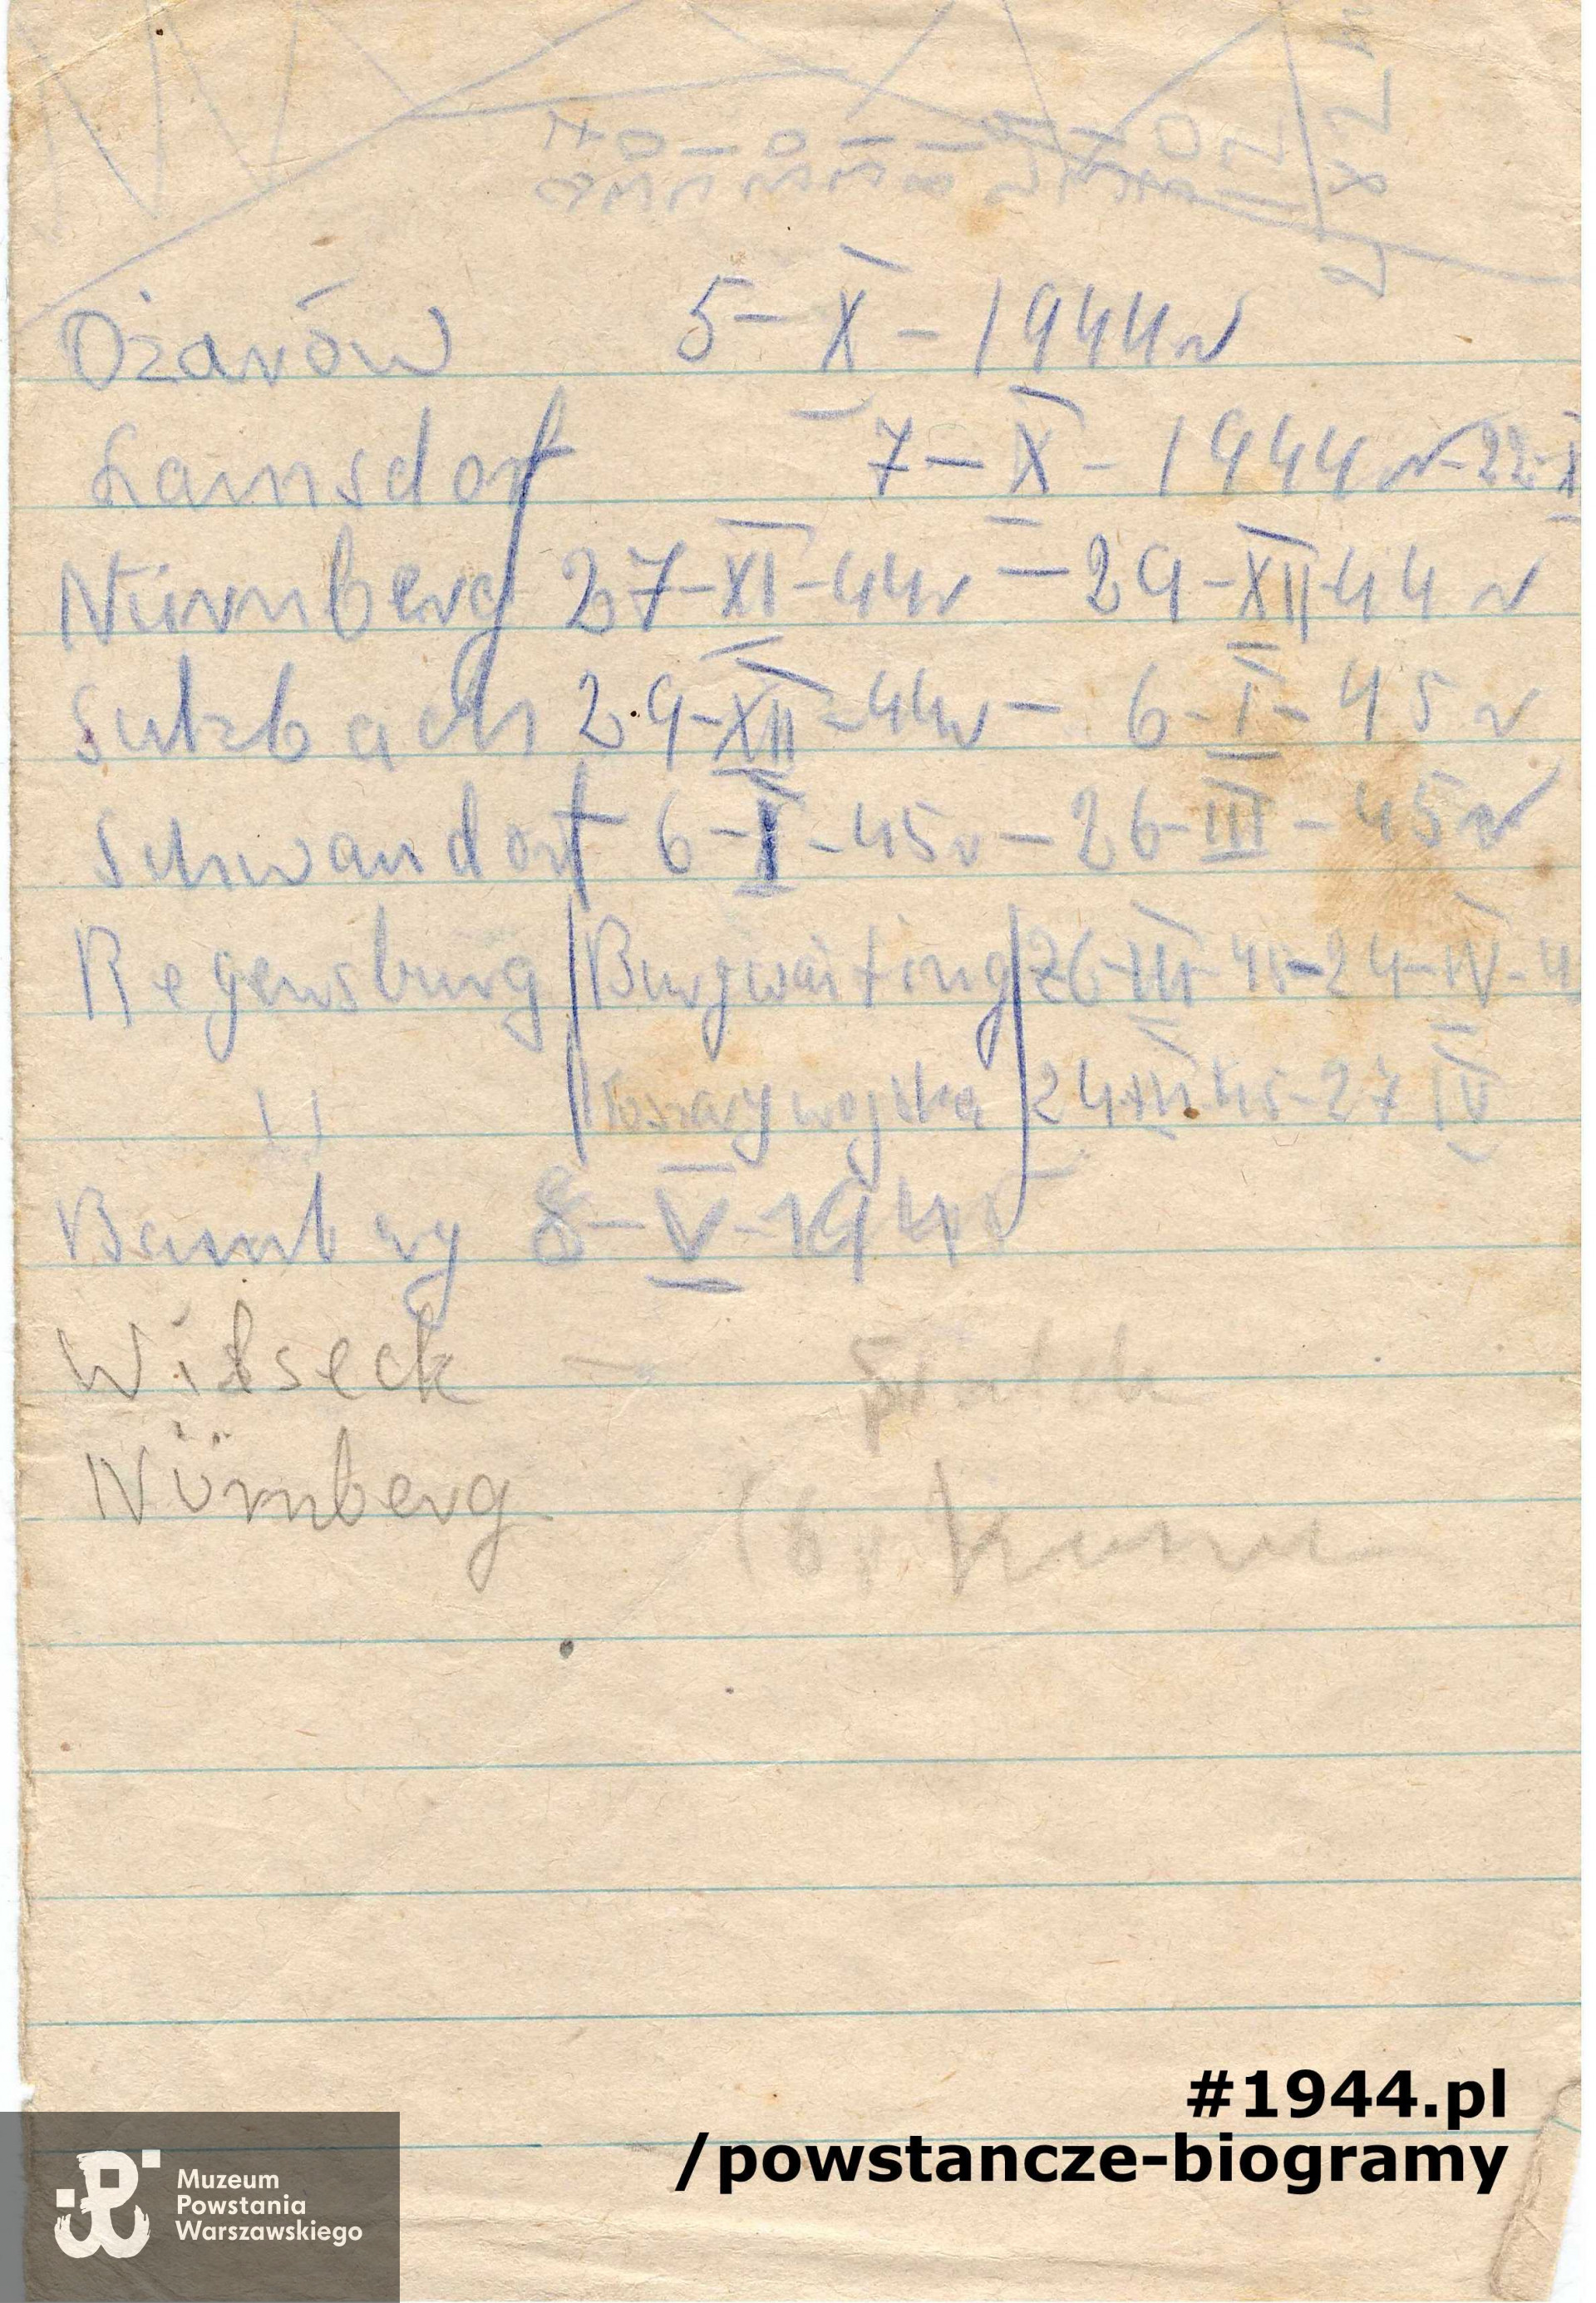 Ożarów 5-X-1944r
Lamsdorf 7-X-1944r-22-X
Nürnberg 27-XI-44r-29-XII-44r
Sulzbach 29-XII-44r-6-I-45r
Schwandorf 6-I-45r-26-III-45r
Regensburg Burgweinting 26-III-45-24-IV-4
" koszary wojska 24 45-27 IV
Bamberg 8-V-1945
Wilseck -
Nürnberg
#1944.pl
/powstancze-biogramy
Muzeum
Powstania
Warszawskiego